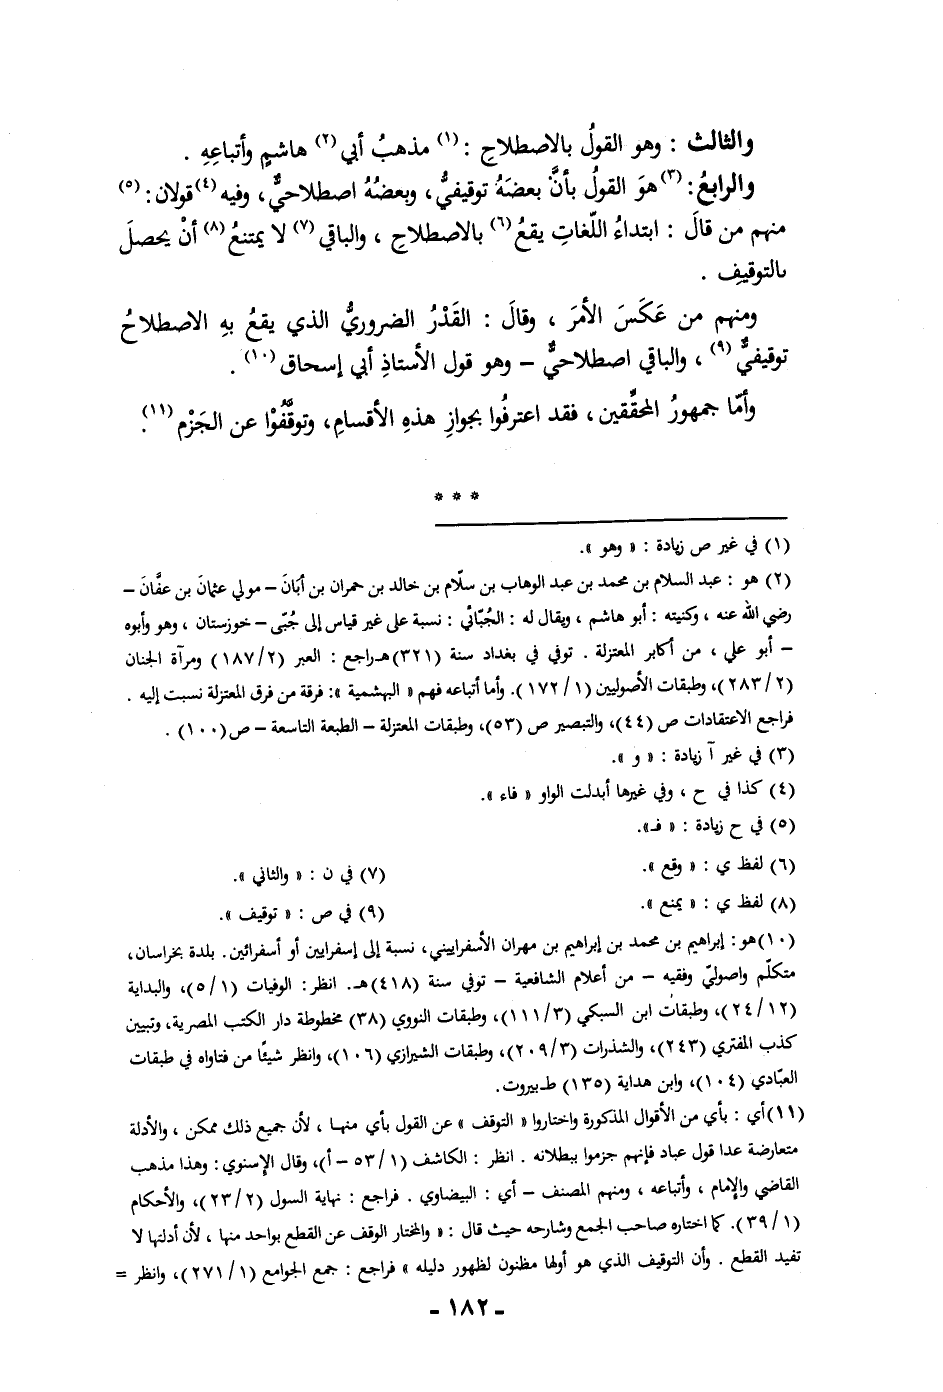 والثالث : وهو القولُ بالاصطلاحِ :(١) مذهبُ أبي(٢) هاشمٍ وأتباعِهِ .
والرابعُ :(٣) هوَ القولُ بأنَّ بعضَهُ توقيفيٌّ ، وبعضُهُ اصطلاحيٌّ ، وفيه(٤) قولان :(٥)
منهم من قالَ : ابتداءُ اللّغاتِ يقعُ(٦) بالاصطلاحِ ، والباقي(٧) لا يمتنعُ(٨) أنْ يحصلَ
بالتوقيفِ .
ومنهم من عَكَسَ الأمرَ ، وقالَ : القَدْرُ الضروريُّ الذي يقعُ بهِ الاصطلاحُ
توقيفيٌّ(٩) ، والباقي اصطلاحيٌّ – وهو قول الأستاذِ أبي إسحاق(١٠) .
وأمّا جمهورُ المحقِّقين ، فقد اعترفُوا بجوازِ هذهِ الأقسامِ ، وتوقَّفُوْا عن الجَزْم(١١).
* * *
(١) في غير ص زيادة : « وهو ».
(٢) هو : عبد السلام بن محمد بن عبد الوهاب بن سلّام بن خالد بن حمران بن أبَانَ – مولي عثمانَ بن عفَّانَ –
رضي الله عنه ، وكنيته : أبو هاشم ، ويقال له : الجُبّائي : نسبة على غير قياس إلى جُبّى – خوزستان ، وهو وأبوه
– أبو علي ، من أكابر المعتزلة . توفي في بغداد سنة (٣٢١)هـ راجع : العبر (١٨٧/٢) ومرآة الجنان
(٢٨٣/٢)، وطبقات الأصوليين (١٧٢/١). وأما أتباعه فهم « البهشمية »: فرقة من فرق المعتزلة نسبت إليه .
فراجع الاعتقادات ص (٤٤)، والتبصير ص (٥٣)، وطبقات المعتزلة – الطبعة التاسعة – ص(١٠٠) .
(٣) في غير آ زيادة : « و ».
(٤) كذا في ح ، وفي غيرها أبدلت الواو « فاء ».
(٥) في ح زيادة : « فـ ».
(٦) لفظ ي : « وقع ».
(٧) في ن : « والثاني ».
(٨) لفظ ي : « يمنع ».
(٩) في ص : « توقيف ».
(١٠)هو : إبراهيم بن محمد بن إبراهيم بن مهران الأسفراييني، نسبة إلى إسفرايين أو أسفرائين . بلدة بخراسان،
متكلّم واصوليّ وفقيه – من أعلام الشافعية – توفي سنة (٤١٨)هـ. انظر : الوفيات (٥/١)، والبداية
(٢٤/١٢)، وطبقات ابن السبكي (١١١/٣)، وطبقات النووي (٣٨) مخطوطة دار الكتب المصرية، وتبيين
كذب المفتري (٢٤٣)، والشذرات (٢٠٩/٣)، وطبقات الشيرازي (١٠٦)، وانظر شيئًا من فتاواه في طبقات
العبّادي (١٠٤)، وابن هداية (١٣٥) ط.بيروت.
(١١)أي : بأي من الأقوال المذكورة واختاروا « التوقف » عن القول بأي منها ، لأن جميع ذلك ممكن ، والأدلة
متعارضة عدا قول عباد فإنهم جزموا ببطلانه . انظر : الكاشف (٥٣/١ – أ)، وقال الإسنوي : وهذا مذهب
القاضي والإمام ، وأتباعه ، ومنهم المصنف – أي : البيضاوي . فراجع : نهاية السول (٢٣/٢)، والأحكام
(٣٩/١). كما اختاره صاحب الجمع وشارحه حيث قال : « والمختار الوقف عن القطع بواحد منها ، لأن أدلتها لا
تفيد القطع . وأن التوقيف الذي هو أولها مظنون لظهور دليله » فراجع : جمع الجوامع (٢٧١/١)، وانظر =
- ١٨٢ -